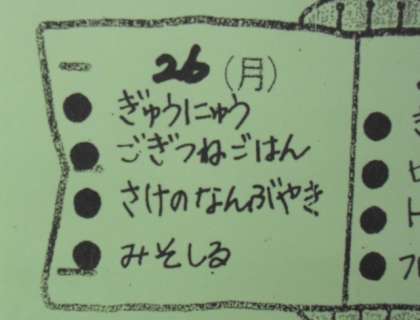 26(月)
ぎゅうにゅう
ごぎつねごはん
さけのなんぶやき
みそしる